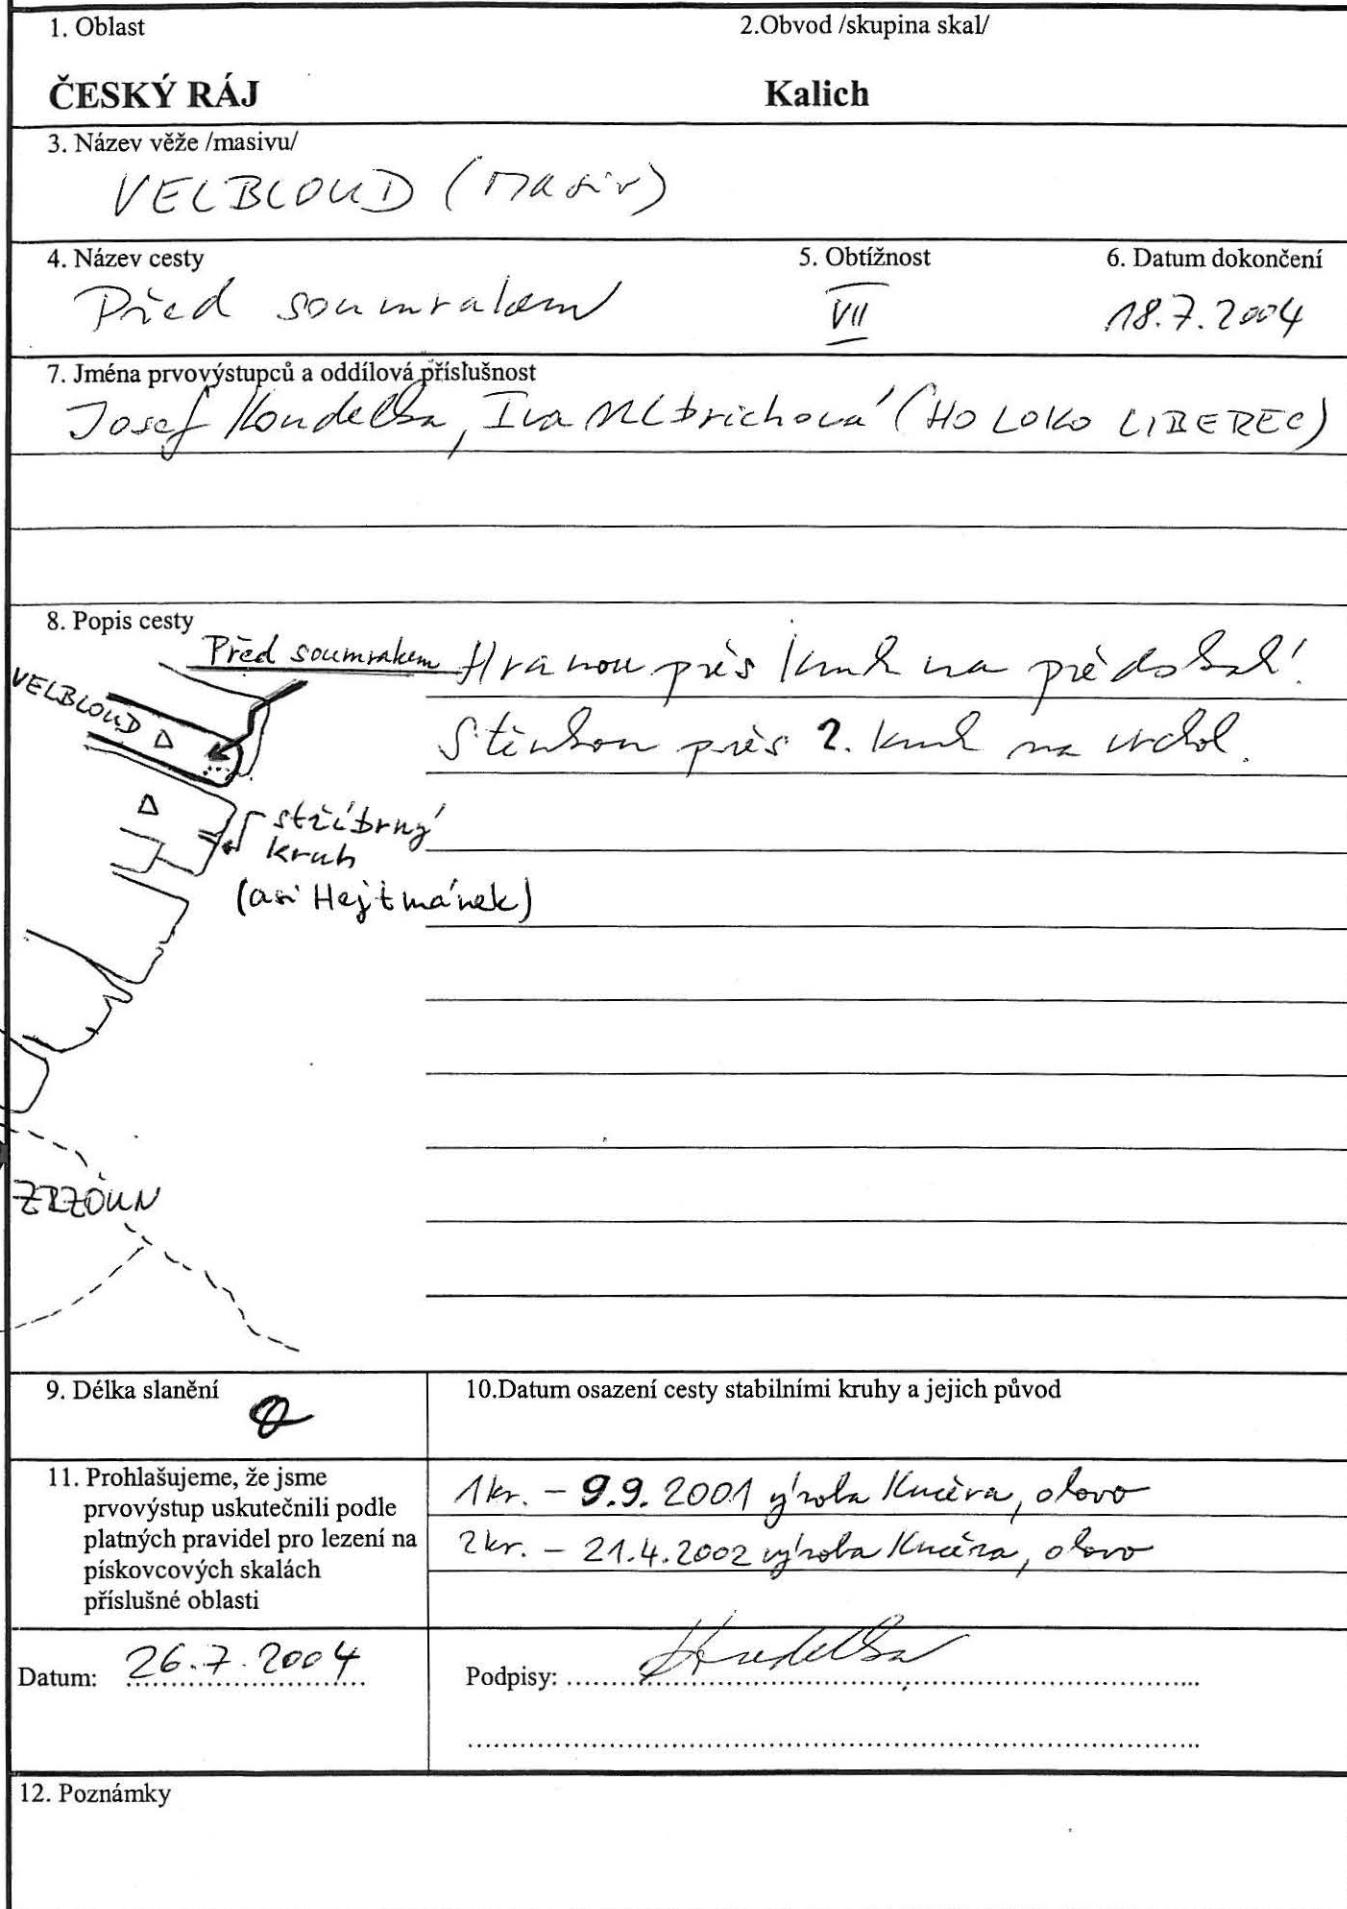 1. Oblast 2.Obvod /skupina skal/
ČESKÝ RÁJ Kalich
3. Název věže /masivu/
VELBLOUD (masiv)
4. Název cesty 5. Obtížnost 6. Datum dokončení
Před soumrakem VII 18.7.2004
7. Jména prvovýstupců a oddílová příslušnost
Josef Koudelka, Iva Ulbrichová (HO LOKO LIBEREC)
8. Popis cesty
Před soumrakem Hranou přes kruh na předskalí.
VELBLOUD
Stěnkou přes 2. kruh na vrchol.
stříbrný
kruh
(asi Hejtmánek)
9. Délka slanění 10.Datum osazení cesty stabilními kruhy a jejich původ
11. Prohlašujeme, že jsme
prvovýstup uskutečnili podle
platných pravidel pro lezení na
pískovcových skalách
příslušné oblasti
1kr. - 9.9. 2001 výroba Kučera, olovo
2kr. - 21.4.2002 výroba Kučera, olovo
Datum: 26.7.2004 Podpisy: Koudelka
12. Poznámky